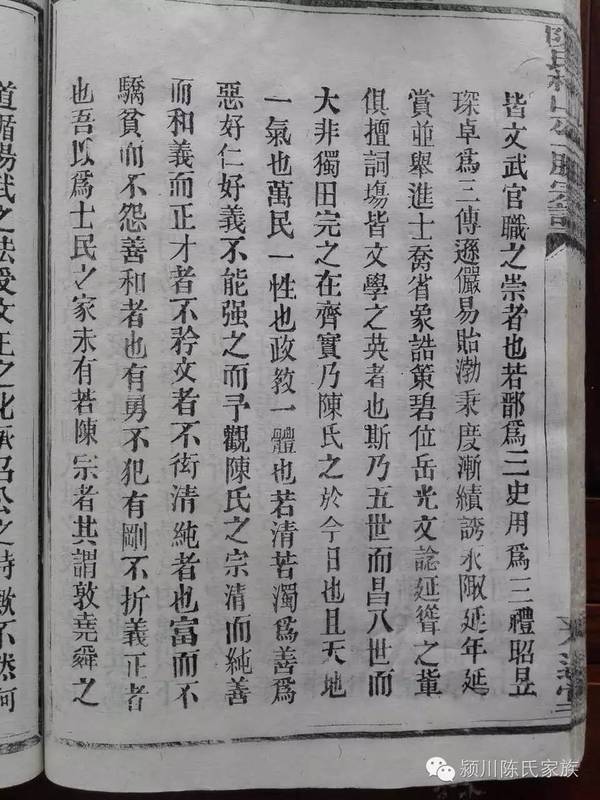 皆文武官職之崇者也若鄢爲三史用爲三禮昭昱
琛卓爲三傳遜儼易貽渤秉度漸績誘永陬延年延
賞並舉進士喬省象誥策碧位岳光文諗延聳之輩
俱擅詞塲皆文學之英者也斯乃五世而昌八世而
大非獨田完之在齊實乃陳氏之於今日也且天地
一氣也萬民一性也政教一體也若清若濁爲善爲
惡好仁好義不能强之而予觀陳氏之宗清而純善
而和義而正才者不矜文者不衒清純者也富而不
驕貧而不怨善和者也有勇不犯有剛不折義正者
也吾以爲士民之家未有若陳宗者其謂敦堯舜之
道循湯武之法受文王之化承召公之詩歟不然何
颍川陈氏家族